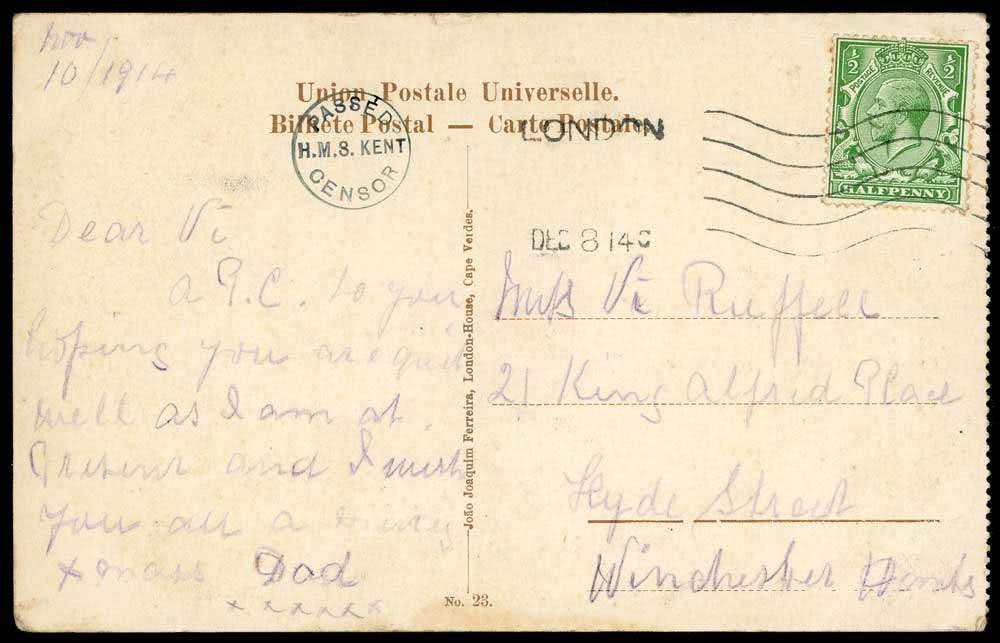 Nov
10/1914
Union Postale Universelle.
Bilhete Postal — Carte Postale.
PASSED
H.M.S. KENT
CENSOR
LONDON
DEC 8 14
½ ½
POSTAGE REVENUE
HALFPENNY
Dear Vi
a P.C. to you
hoping you are quit
well as I am at
Present and I wish
you all a merry
xmass Dad
x x x x x x
João Joaquim Ferreira, London-House, Cape Verdes.
Miss Vi Ruffell
21 King Alfred Place
Hyde Street
Winchester Hants
No. 23.